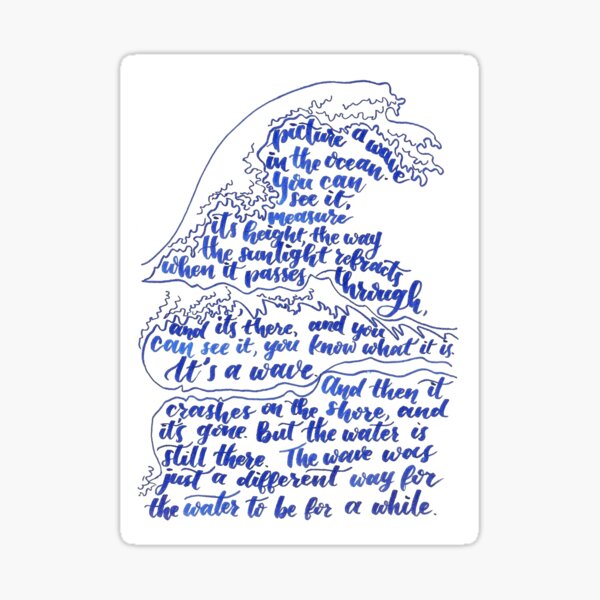 picture a wave
in the ocean.
You can
see it,
measure
its height, the way
the sunlight refracts
when it passes through,
and it's there, and you
can see it, you know what it is.
It's a wave.
And then it
crashes on the shore, and
it's gone. But the water is
still there. The wave was
just a different way for
the water to be for a while.